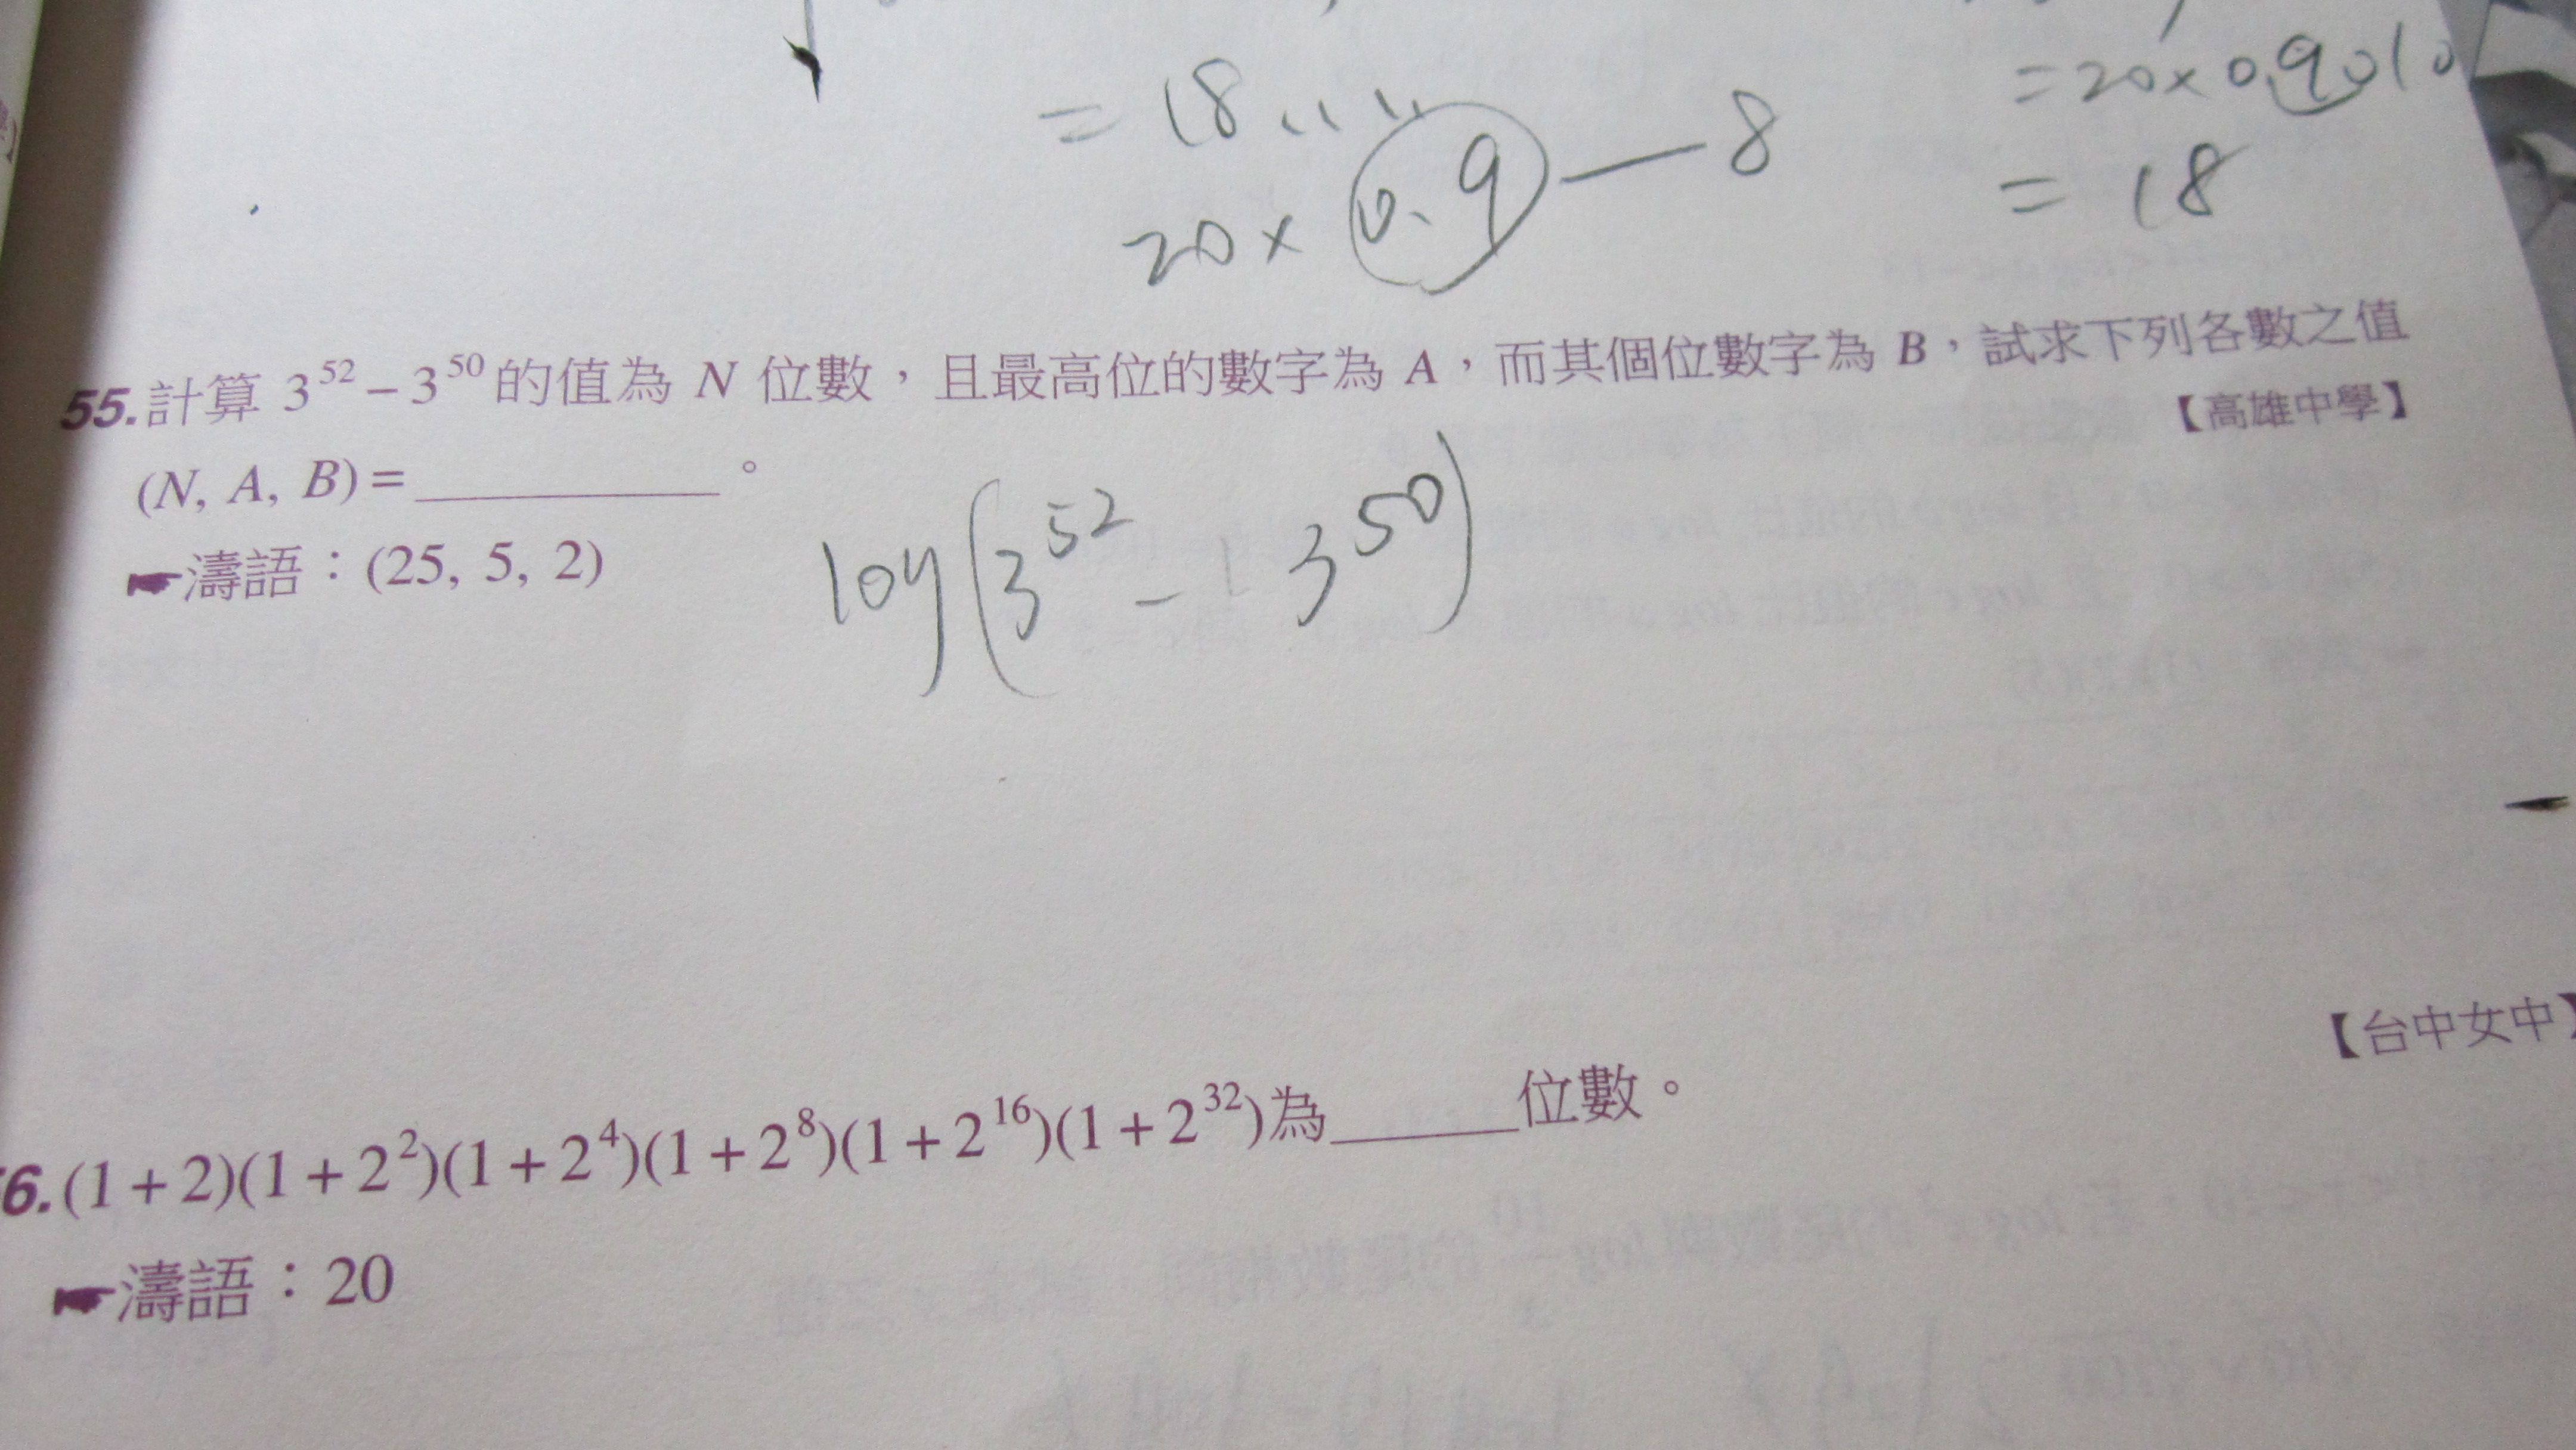 = 18
= 20 × 0.9010
20 × 0.9 — 8
= 18
55.計算 3^52 − 3^50 的值為 N 位數，且最高位的數字為 A，而其個位數字為 B，試求下列各數之值
【高雄中學】
(N, A, B) = ＿＿＿＿＿。
☛濤語：(25, 5, 2)
log(3^52 − 3^50)
【台中女中】
6.(1+2)(1+2^2)(1+2^4)(1+2^8)(1+2^16)(1+2^32)為＿＿＿位數。
☛濤語：20